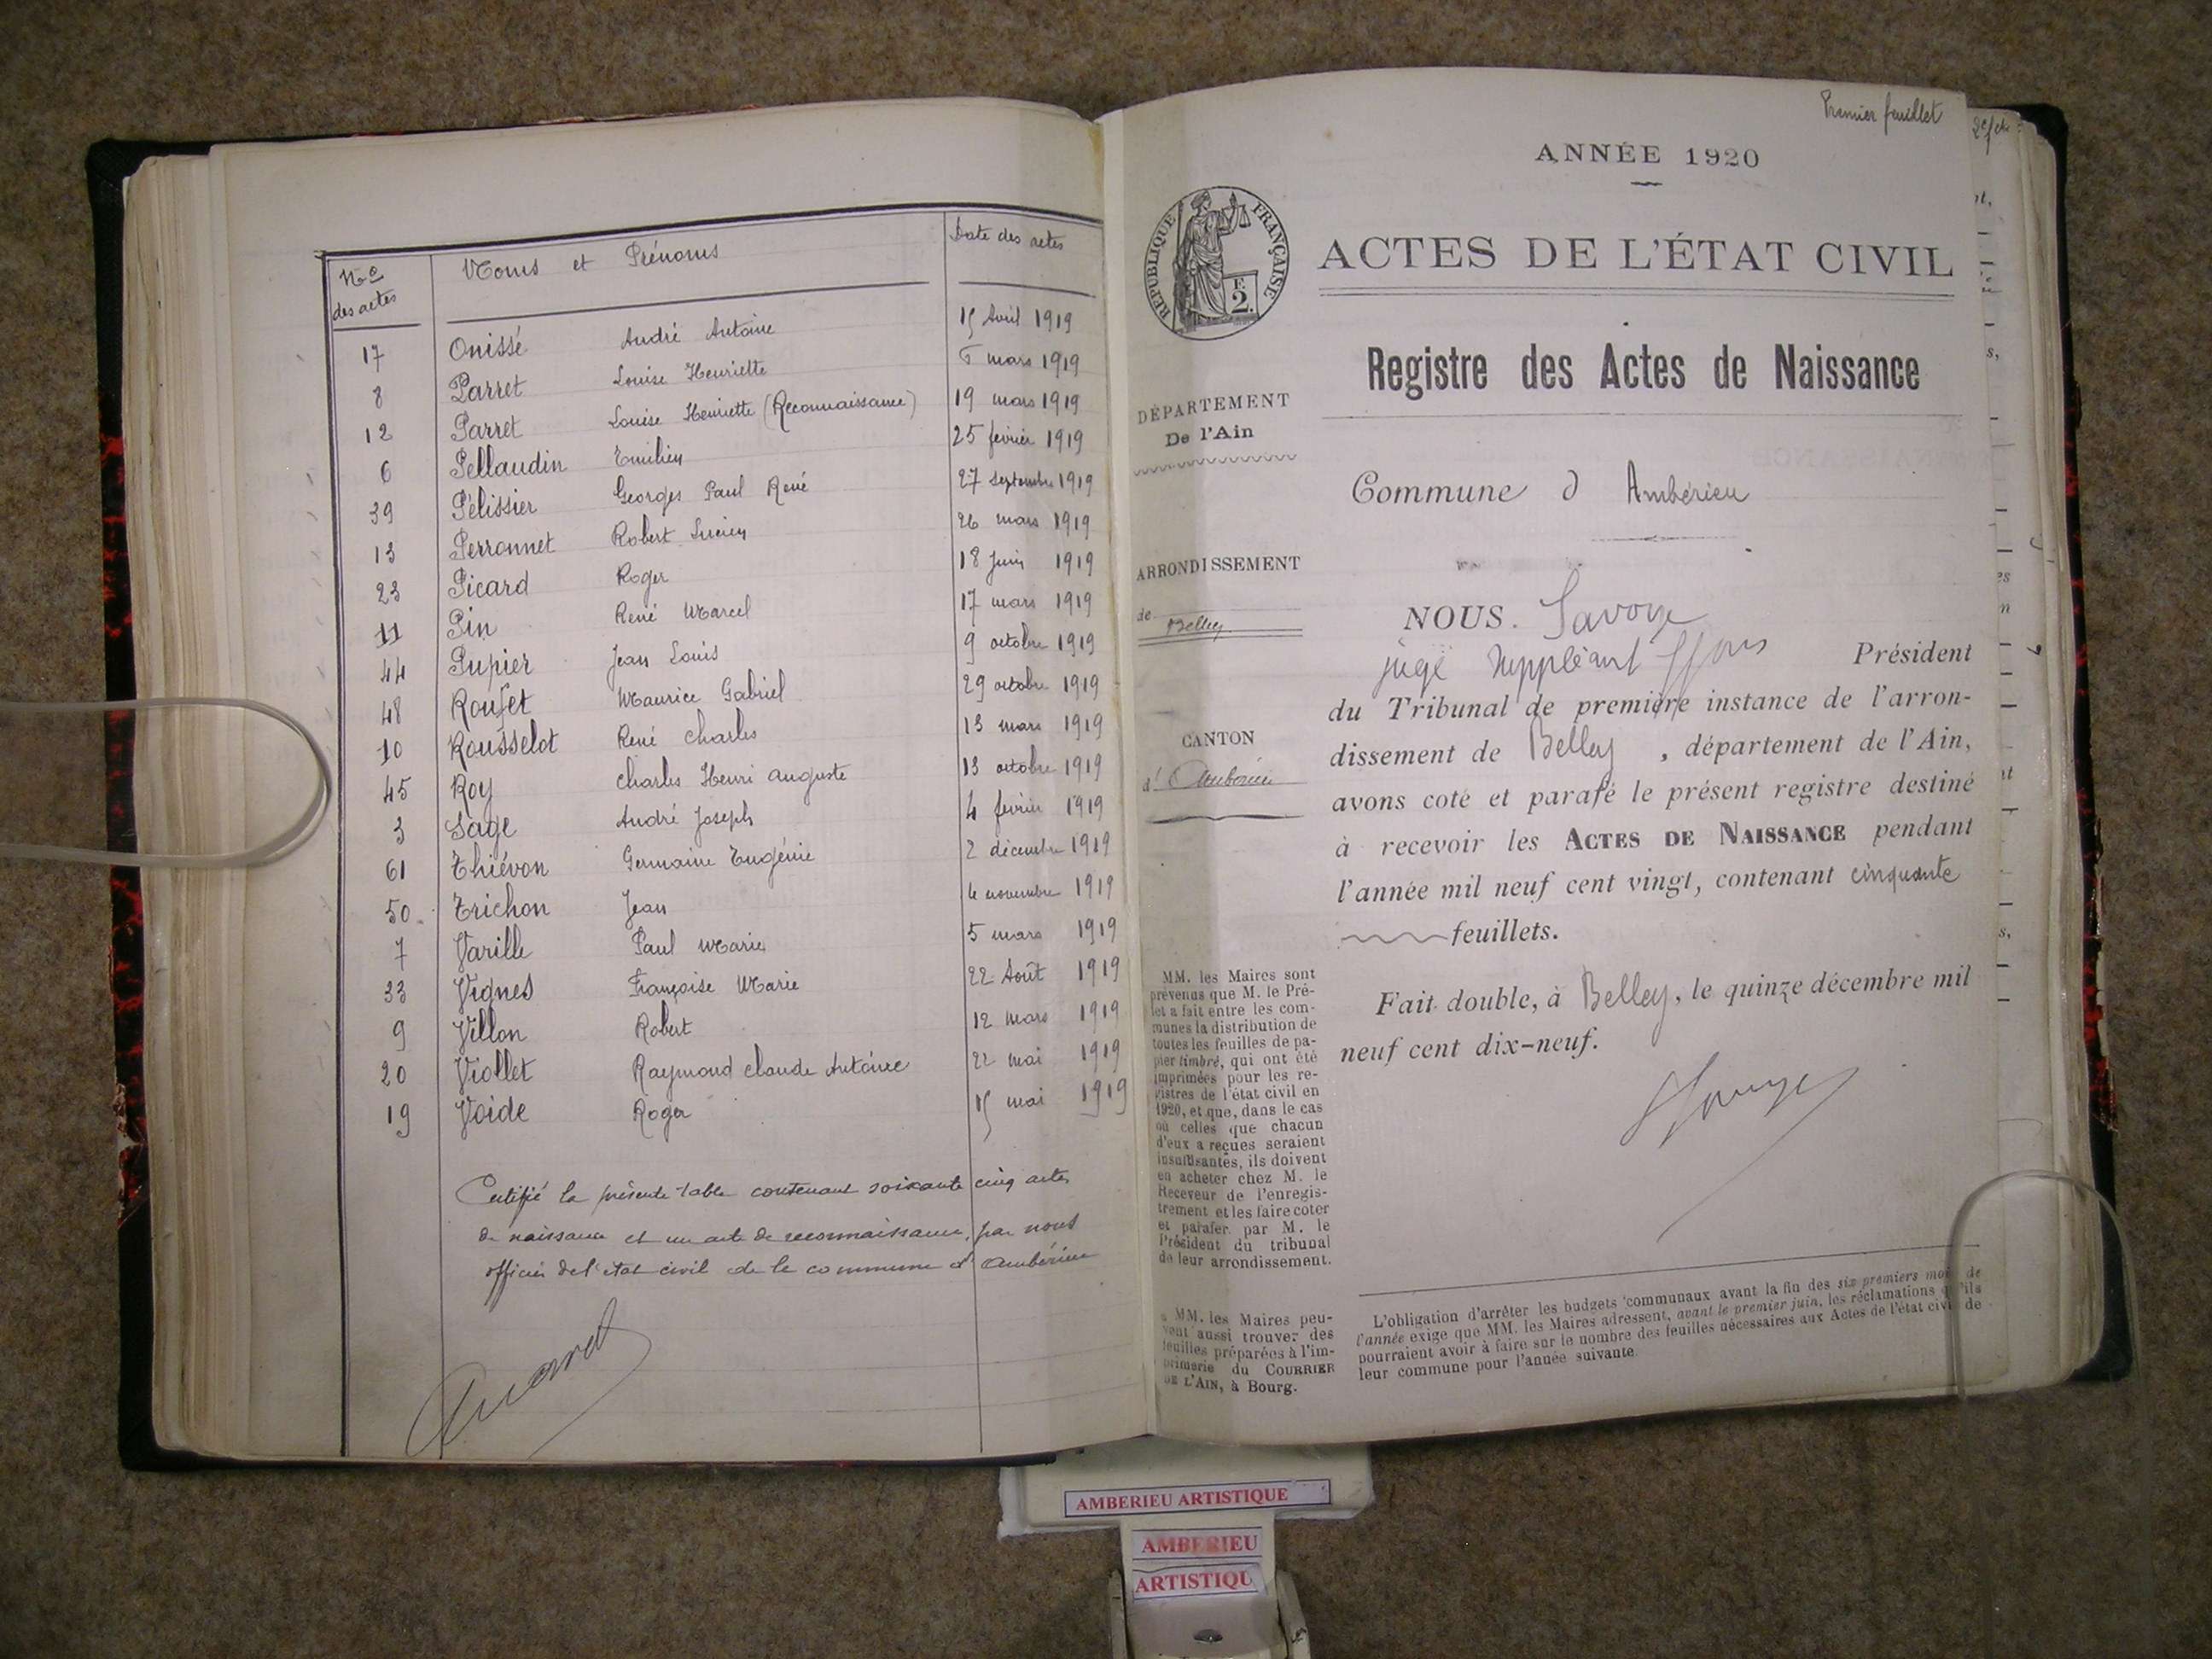 Nos des actes
Noms et Prénoms
Date des actes
17 Onissé André Antoine 15 Avril 1919
8 Parret Louise Henriette 6 mars 1919
12 Parret Louise Henriette (Reconnaissance) 19 mars 1919
6 Pellaudin Emilien 25 février 1919
39 Pélissier Georges Paul René 27 septembre 1919
13 Perronnet Robert Lucien 26 mars 1919
23 Picard Roger 18 Juin 1919
11 Pin René Marcel 17 mars 1919
44 Pupier Jean Louis 9 octobre 1919
48 Roufet Maurice Gabriel 29 octobre 1919
10 Rousselot René Charles 13 mars 1919
45 Roy Charles Henri Auguste 13 octobre 1919
3 Sage André Joseph 4 février 1919
61 Thiévon Germaine Eugénie 2 décembre 1919
50 Trichon Jean novembre 1919
7 Varille Paul Marie 5 mars 1919
33 Vignes Françoise Marie 22 Août 1919
9 Villon Robert 12 mars 1919
20 Viollet Raymond Claude Antoine 22 mai 1919
19 Voide Roger 15 mai 1919
Certifié la présente table contenant soixante cinq actes
de naissance et un acte de reconnaissance, par nous
officier de l'état civil de la commune d'Ambérieu
Premier feuillet
ANNÉE 1920
RÉPUBLIQUE FRANÇAISE
F.
2.
ACTES DE L'ÉTAT CIVIL
Registre des Actes de Naissance
DÉPARTEMENT
De l'Ain
Commune d Ambérieu
ARRONDISSEMENT
de Belley
CANTON
d'Ambérieu
NOUS. Savoye
juge suppléant ffons Président
du Tribunal de première instance de l'arron-
dissement de Belley, département de l'Ain,
avons coté et parafé le présent registre destiné
à recevoir les ACTES DE NAISSANCE pendant
l'année mil neuf cent vingt, contenant cinquante
feuillets.
Fait double, à Belley, le quinze décembre mil
neuf cent dix-neuf.
MM. les Maires sont
prévenus que M. le Pré-
fet a fait entre les com-
munes la distribution de
toutes les feuilles de pa-
pier timbré, qui ont été
imprimées pour les re-
gistres de l'état civil en
1920, et que, dans le cas
où celles que chacun
d'eux a reçues seraient
insuffisantes, ils doivent
en acheter chez M. le
Receveur de l'enregis-
trement et les faire coter
et parafer par M. le
Président du tribunal
de leur arrondissement.
MM. les Maires peu-
vent aussi trouver des
feuilles préparées à l'im-
primerie du COURRIER
DE L'AIN, à Bourg.
L'obligation d'arrêter les budgets communaux avant la fin des six premiers mois de
l'année exige que MM. les Maires adressent, avant le premier juin, les réclamations qu'ils
pourraient avoir à faire sur le nombre des feuilles nécessaires aux Actes de l'état civil de
leur commune pour l'année suivante.
AMBERIEU ARTISTIQUE
AMBERIEU
ARTISTIQU